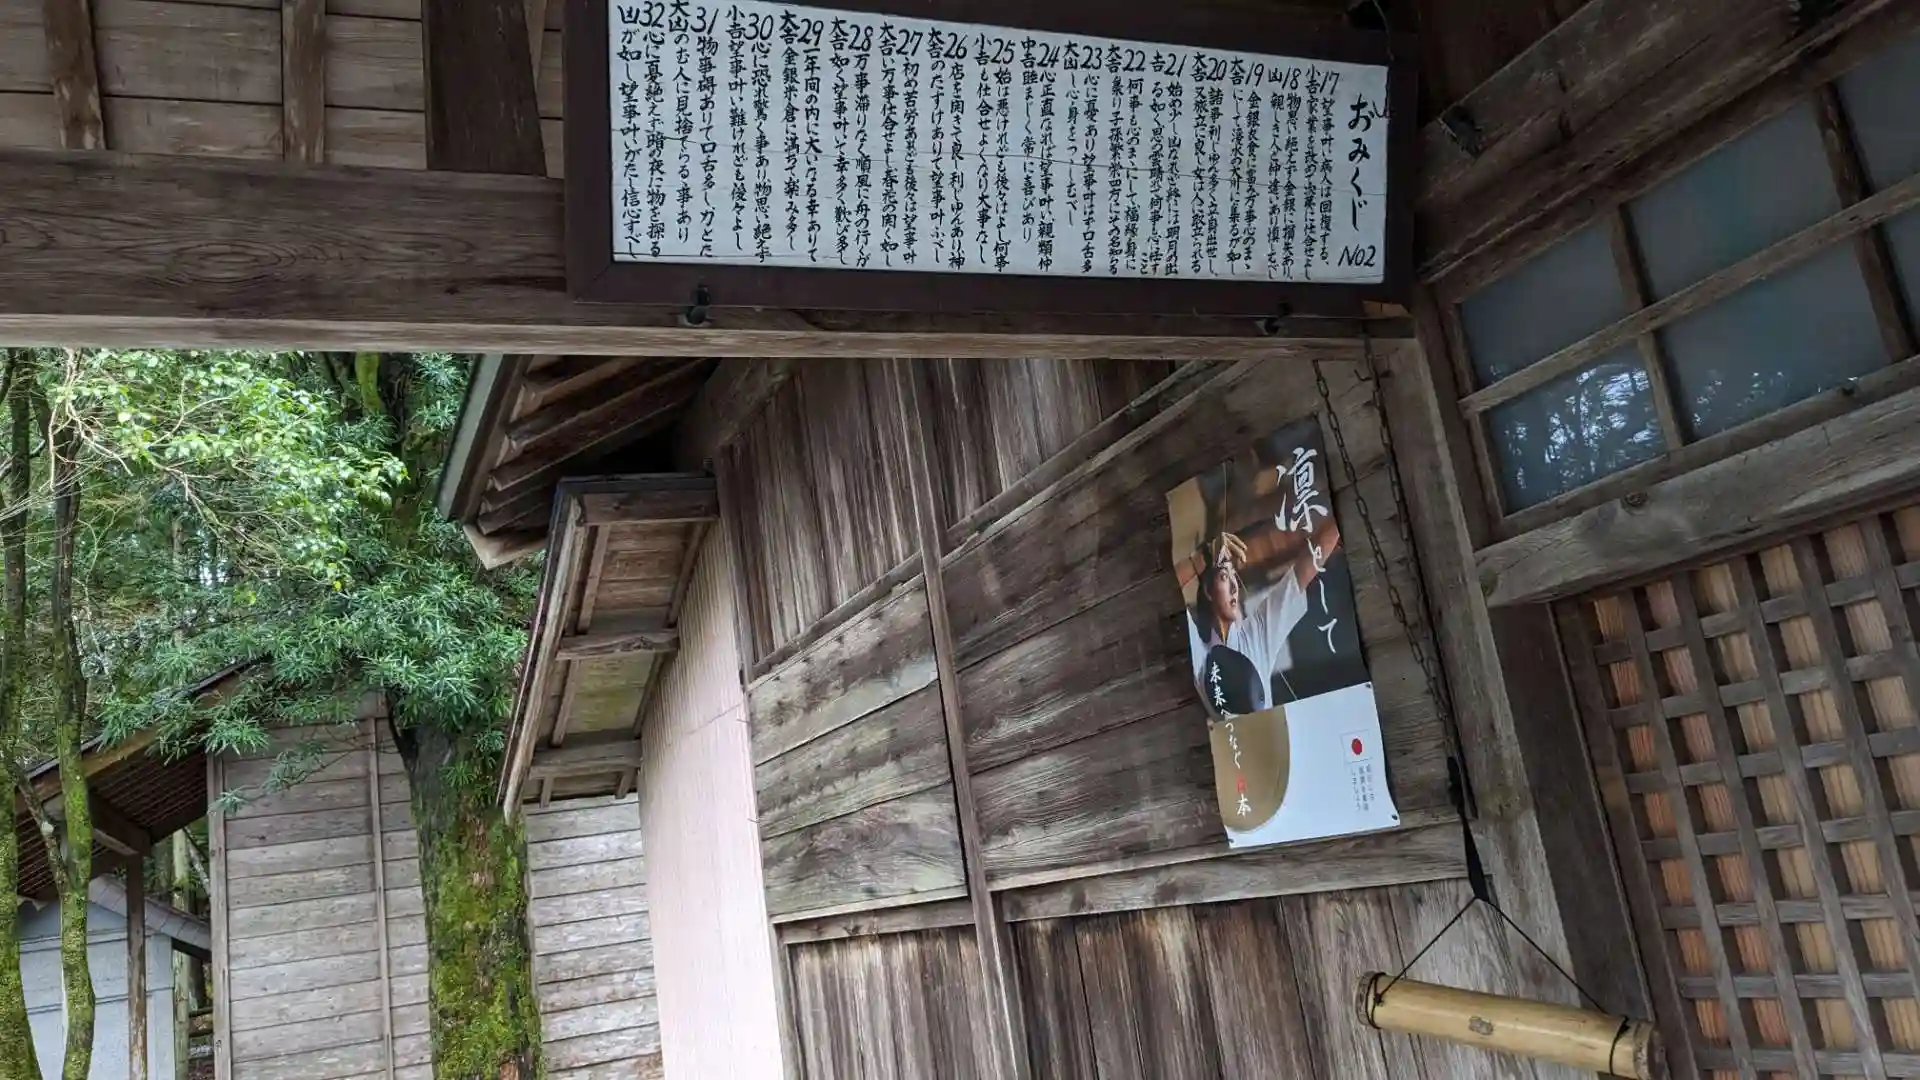 おみくじ No2
17 望事叶い病人は回復する、
小吉 家業を改め心楽に仕合せよし
18 物思い絶えず金銀に損失あり、
凶 親しき人と仲違いあり慎むべし
19 金銀衣食に富み万事心のまゝ
大吉 にして湧水の大川に集るが如し
20 諸事利じゅん多く立身出世し、
大吉 又旅立に良し女は人に取立られる
21 始め少し凶なれど終には明月の出
吉 る如く思の雲晴れて何事も心に任すこと
22 何事も心のまゝにして福縁身に
大吉 集り子孫繁栄四方にその名知らる
23 心に憂あり望事叶はず口舌多
大凶 し心身をつゝしむべし
24 心正直なれば望事叶い親類仲
中吉 睦ましく常に喜びあり
25 始は悪けれども後々はよし何事
小吉 も仕合せよくなり大事なし
26 店を開きて良し利じゅんあり、神
大吉 のたすけありて望事叶ふべし
27 初め苦労あれども後は望事叶
大吉 い万事仕合せよし春花の開く如し
28 万事滞りなく順風に舟の行くが
大吉 如く望事叶いて幸多く歓び多し
29 一年間の内に大いなる幸ありて
大吉 金銀米倉に満ちて楽み多し
30 心に恐れ驚く事あり物思い絶えず
小吉 望事叶い難けれども後々よし
31 物事碍ありて口舌多し、力とた
大凶 のむ人に見捨てらる事あり
32 心に憂絶えず暗の夜に物を探る
凶 が如し望事叶いがたし信心すべし
凛として
未来へつなぐ日本